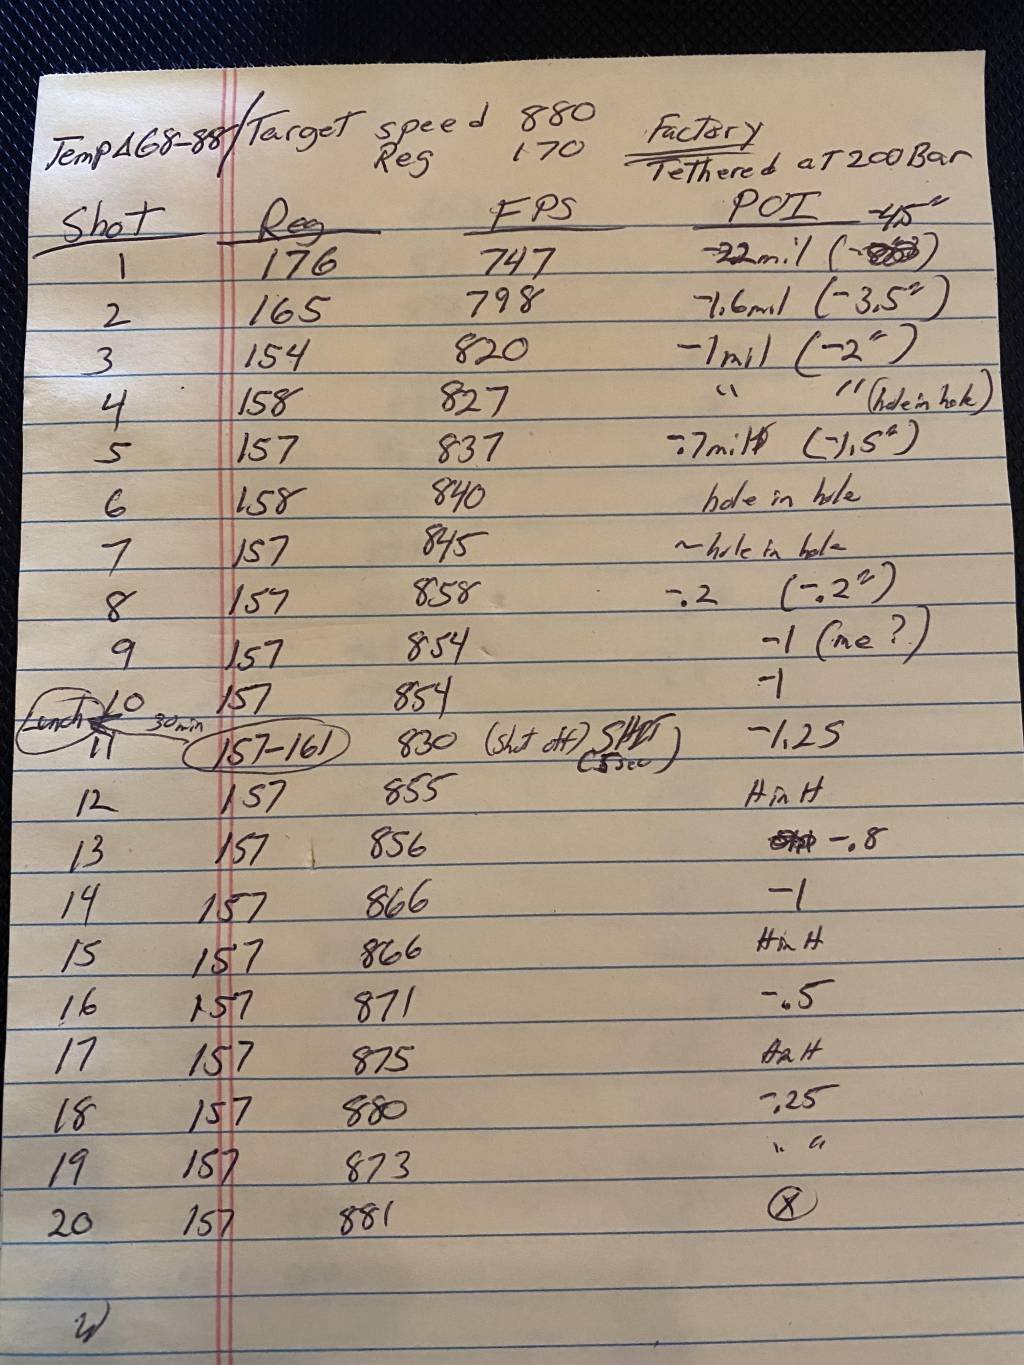 Temp Δ68-88/Target speed 880 Factory
Reg 170 Tethered at 200 Bar
Shot Reg FPS POI -4.5"
1 176 747 -22mil (-)
2 165 798 -1.6mil (-3.5")
3 154 820 -1mil (-2")
4 158 827 " " (hole in hole)
5 157 837 -.7mil (-1.5")
6 158 840 hole in hole
7 157 845 ~hole in hole
8 157 858 -.2 (-.2")
9 157 854 -1 (me?)
10 157 854 -1
Lunch 30min
11 157-161 830 (shut off) (5sec) -1.25
12 157 855 H in H
13 157 856 -.8
14 157 866 -1
15 157 866 H in H
16 157 871 -.5
17 157 875 H in H
18 157 880 -.25
19 157 873 " "
20 157 881 X